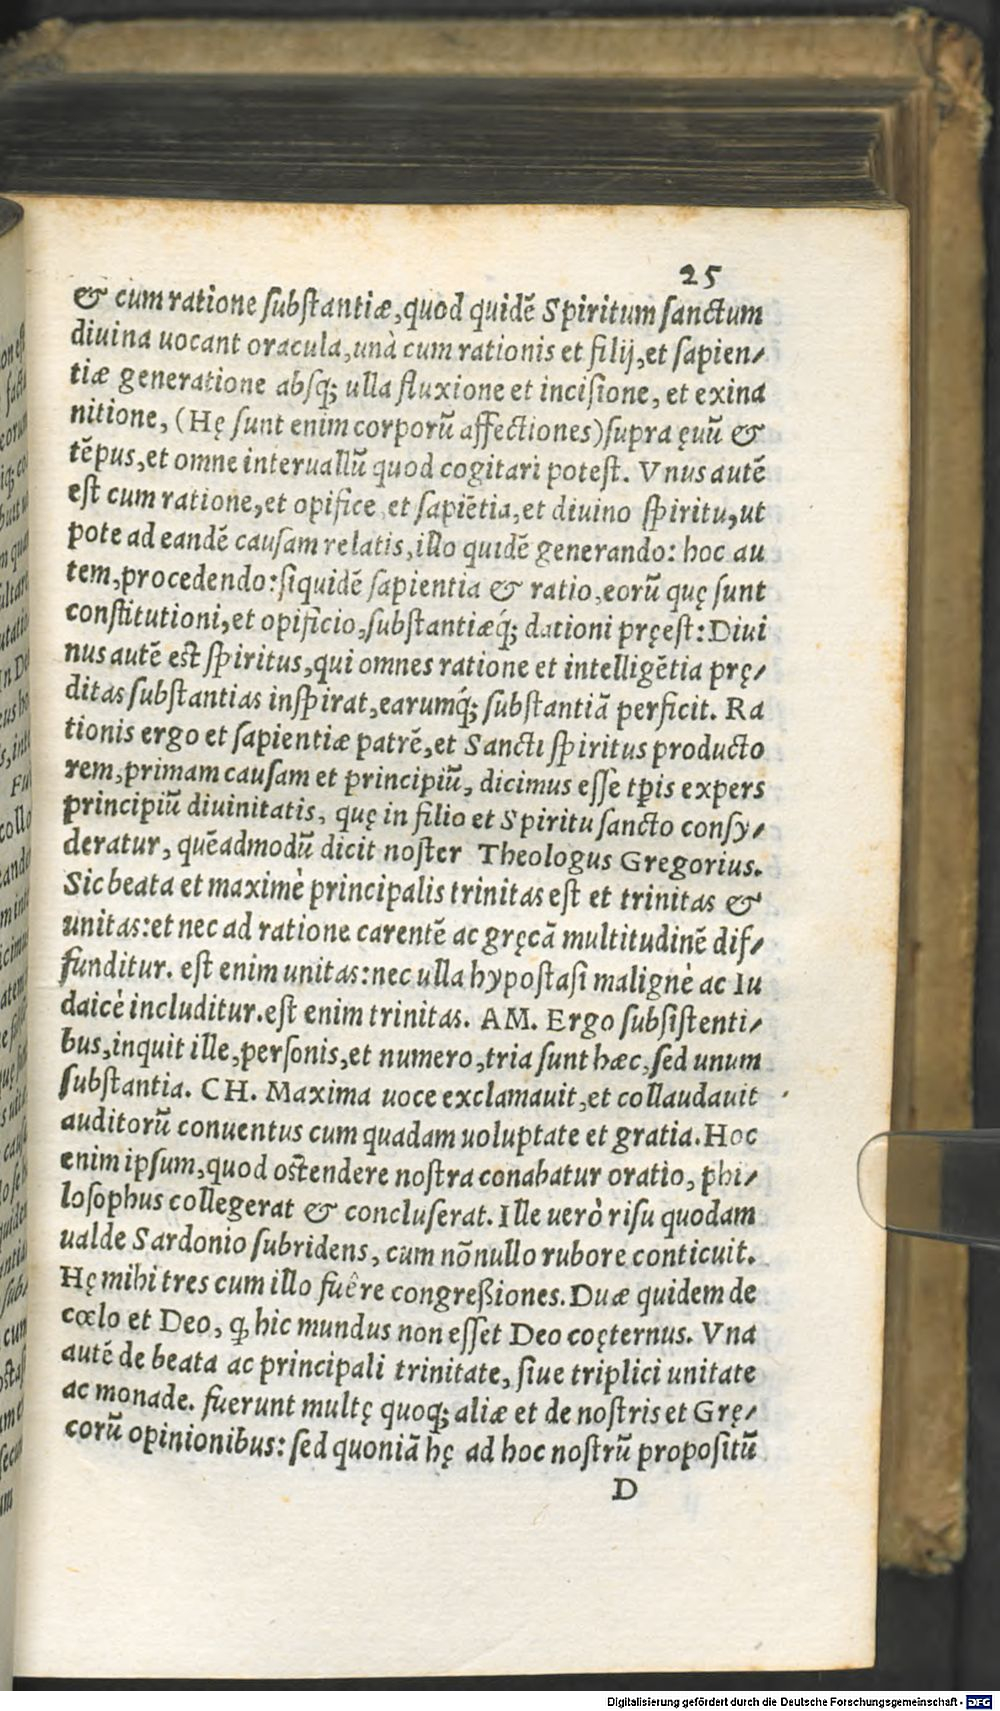 25
& cum ratione substantiæ, quod quidẽ Spiritum sanctum
diuina uocant oracula, unà cum rationis et filij, et sapien⸗
tiæ generatione absq; ulla fluxione et incisione, et exina
nitione, (Hę sunt enim corporũ affectiones) supra ęuũ &
tẽpus, et omne interuallũ quod cogitari potest. Vnus autẽ
est cum ratione, et opifice et sapiẽtia, et diuino spiritu, ut
pote ad eandẽ causam relatis, illo quidẽ generando: hoc au
tem, procedendo: siquidẽ sapientia & ratio, eorũ quę sunt
constitutioni, et opificio, substantiæq́; dationi pręest: Diui
nus autẽ est spiritus, qui omnes ratione et intelligẽtia prę⸗
ditas substantias inspirat, earumq́; substantiã perficit. Ra
tionis ergo et sapientiæ patrẽ, et Sancti spiritus producto
rem, primam causam et principiũ, dicimus esse tp̃is expers
principiũ diuinitatis, quę in filio et Spiritu sancto consy⸗
deratur, quẽadmodũ dicit noster Theologus Gregorius.
Sic beata et maximè principalis trinitas est et trinitas &
unitas: et nec ad ratione carentẽ ac gręcã multitudinẽ dif⸗
funditur. est enim unitas: nec ulla hypostasi malignè ac Iu
daicè includitur. est enim trinitas. AM. Ergo subsistenti⸗
bus, inquit ille, personis, et numero, tria sunt hæc, sed unum
substantia. CH. Maxima uoce exclamauit, et collaudauit
auditorũ conuentus cum quadam uoluptate et gratia. Hoc
enim ipsum, quod ostendere nostra conabatur oratio, phi⸗
losophus collegerat & concluserat. Ille uerò risu quodam
ualde Sardonio subridens, cum nõnullo rubore conticuit.
Hę mihi tres cum illo fuêre congreßiones. Duæ quidem de
cœlo et Deo, ꝙ hic mundus non esset Deo coęternus. Vna
autẽ de beata ac principali trinitate, siue triplici unitate
ac monade. fuerunt multę quoq; aliæ et de nostris et Grę⸗
corũ opinionibus: sed quoniã hę ad hoc nostrũ propositũ
D
Digitalisierung gefördert durch die Deutsche Forschungsgemeinschaft - DFG